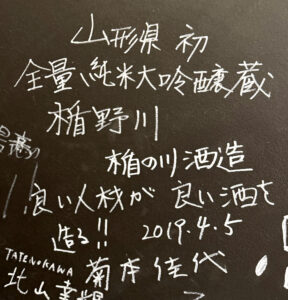 山形県 初
全量、純米大吟醸蔵
楯野川
楯の川酒造
良い人材が 良い酒を
造る!! 2019.4.5
TATENOKAWA 菊本佳代
北山